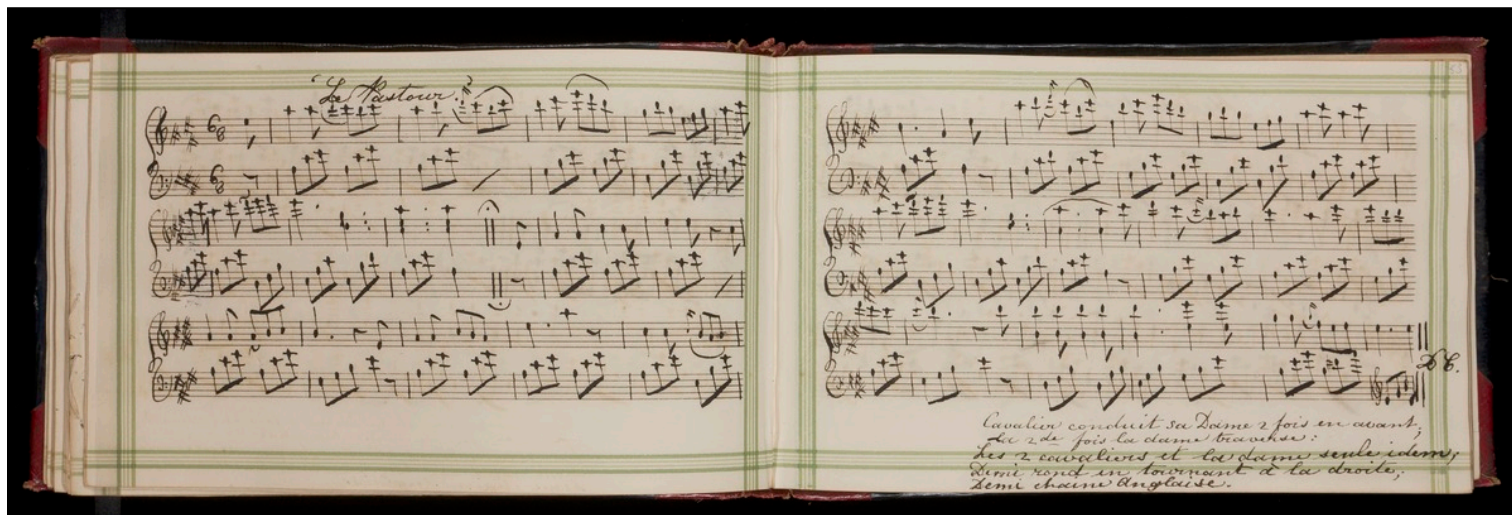 "Le Pastour."
D.C.
Cavalier conduit sa Dame 2 fois en avant;
La 2de fois la dame traverse:
Les 2 cavaliers et la dame seule idem;
Demi rond en tournant à la droite;
Demi chaine Anglaise.